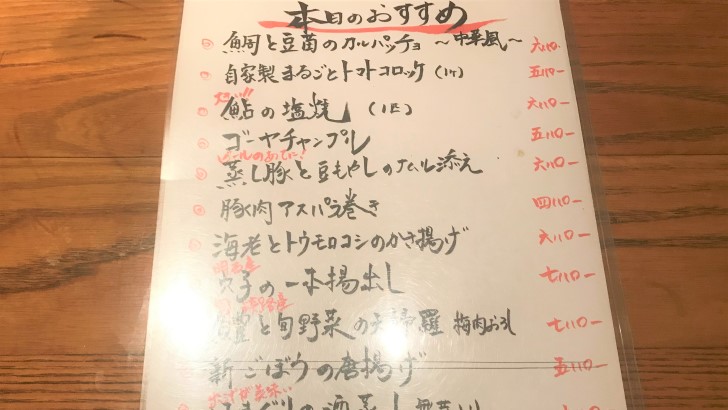 本日のおすすめ
鯛と豆苗のカルパッチョ 〜中華風〜 六八〇
自家製まるごとトマトコロッケ(1ケ) 五八〇ー
鮎の塩焼(1匹) 六八〇ー
ゴーヤチャンプル 五八〇ー
ビールのあてに!
蒸し豚と豆もやしのナムル添え 六八〇ー
豚肉アスパラ巻き 四八〇ー
海老とトウモロコシのかき揚げ 六八〇ー
穴子の一本揚出し 七八〇ー
と旬野菜の天婦羅 梅肉おろし 七八〇ー
新ごぼうの唐揚げ 五八〇ー
の酒蒸し